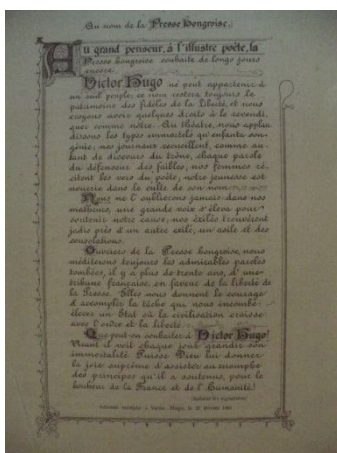 Au nom de la Presse hongroise.
Au grand penseur, à l'illustre poète, la
Presse hongroise souhaite de longs jours
encore.
Victor Hugo ne peut appartenir à
un seul peuple; ce nom restera toujours le
patrimoine des fidèles de la liberté, et nous
croyons avoir quelques droits à le revendi
quer comme nôtre. Au théâtre, nous applau
dissons les types immortels qu'enfanta son
génie; nos journaux recueillent, comme au-
tant de discours du trône, chaque parole
du défenseur des faibles, nos femmes ré-
citent les vers du poète; notre jeunesse est
nourrie dans le culte de son nom.
Nous ne l'oublierons jamais: dans nos
malheurs, une grande voix s'éleva pour
soutenir notre cause; nos exilés trouvèrent
jadis près d'un autre exilé, un asile et des
consolations.
Ouvriers de la Presse hongroise, nous
méditerons toujours les admirables paroles
tombées, il y a plus de trente ans, d'une
tribune française, en faveur de la liberté de
la Presse. Elles nous donnent le courage
d'accomplir la tâche qui nous incombe:
élever un État où la civilisation croisse
avec l'ordre et la liberté.
Que peut-on souhaiter à Victor Hugo!
Vivant il voit chaque jour grandir son
immortalité. Puisse Dieu lui donner
la joie suprême d'assister au triomphe
des principes qu'il a soutenus, pour le
bonheur de la France et de l'Humanité!
(Suivent les signatures)
Victor Hugo, le 27 février 1881